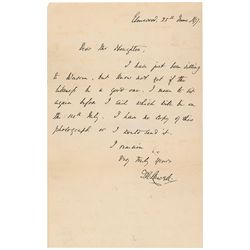 Elmwood, 25th June, 1877.
Dear Mr. Houghton,
I have just been sitting
to Warren, but know not yet if the
likeness be a good one. I mean to sit
again before I sail which will be on
the 14th July. I have no copy of this
photograph or I would send it.
I remain
Very truly yours
J. R. Lowell